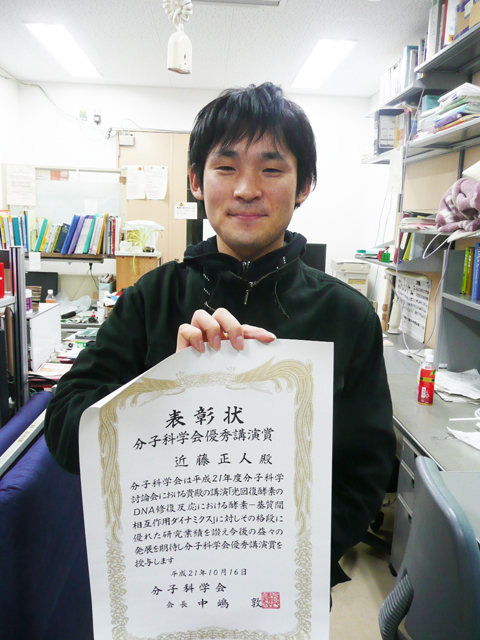 表彰状
分子科学会優秀講演賞
近藤正人 殿
分子科学会は平成21年度分子科学
討論会における貴殿の講演「光回復酵素の
DNA修復反応における酵素－基質間
相互作用ダイナミクス」に対しその格段に
優れた研究業績を讃え今後の益々の
発展を期待し分子科学会優秀講演賞を
授与します
平成21年10月16日
分子科学会
会長 中嶋 敦